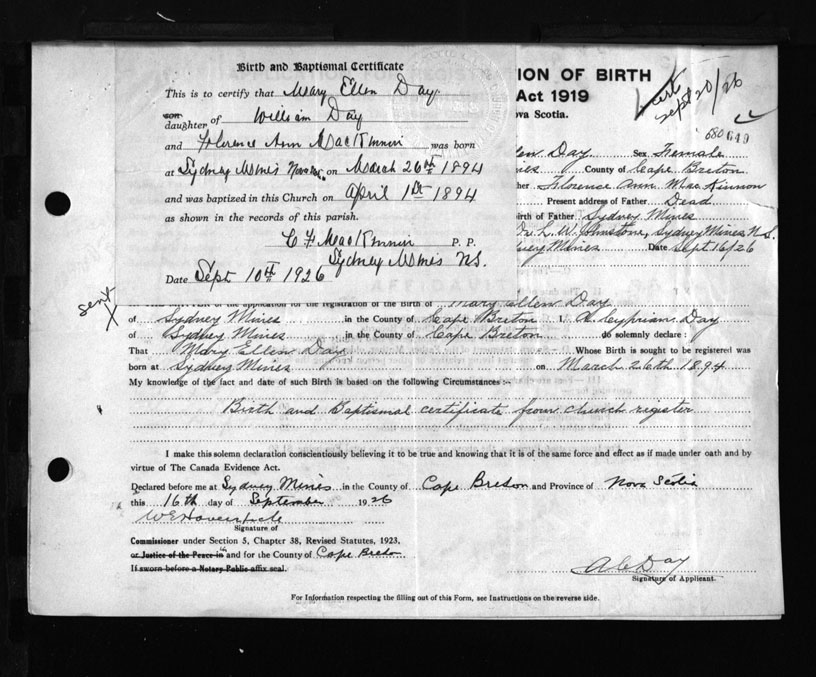 Birth and Baptismal Certificate
This is to certify that Mary Ellen Day
son
daughter of William Day
and Florence Ann MacKinnin was born
at Sydney Mines on March 26th 1894
and was baptized in this Church on April 1st 1894
as shown in the records of this parish.
C F MacKinnin P. P.
Sydney Mines N.S.
Date Sept 10th 1926
ION OF BIRTH
Act 1919
ova Scotia.
cert
sept 20/26
680649
llen Day Sex Female
County of Cape Breton
her Florence Ann MacKinnon
Present address of Father Dead
irth of Father Sydney Mines
Dr. L. W. Johnstone, Sydney Mines N.S.
dney Mines Date Sept 16/26
sent
X
of the application for the registration of the Birth of Mary Ellen Day
of Sydney Mines in the County of Cape Breton I, A. Cyprian Day
of Sydney Mines in the County of Cape Breton do solemnly declare:
That Mary Ellen Day Whose Birth is sought to be registered was
born at Sydney Mines on March 26th 1894
My knowledge of the fact and date of such Birth is based on the following Circumstances:-
Birth and Baptismal certificate from church register
I make this solemn declaration conscientiously believing it to be true and knowing that it is of the same force and effect as if made under oath and by
virtue of The Canada Evidence Act.
Declared before me at Sydney Mines in the County of Cape Breton and Province of Nova Scotia
this 16th day of September 1926
Signature of
Commissioner under Section 5, Chapter 38, Revised Statutes, 1923,
or Justice of the Peace in and for the County of Cape Breton
If sworn before a Notary Public affix seal.
A C Day
Signature of Applicant.
For Information respecting the filling out of this Form, see Instructions on the reverse side.